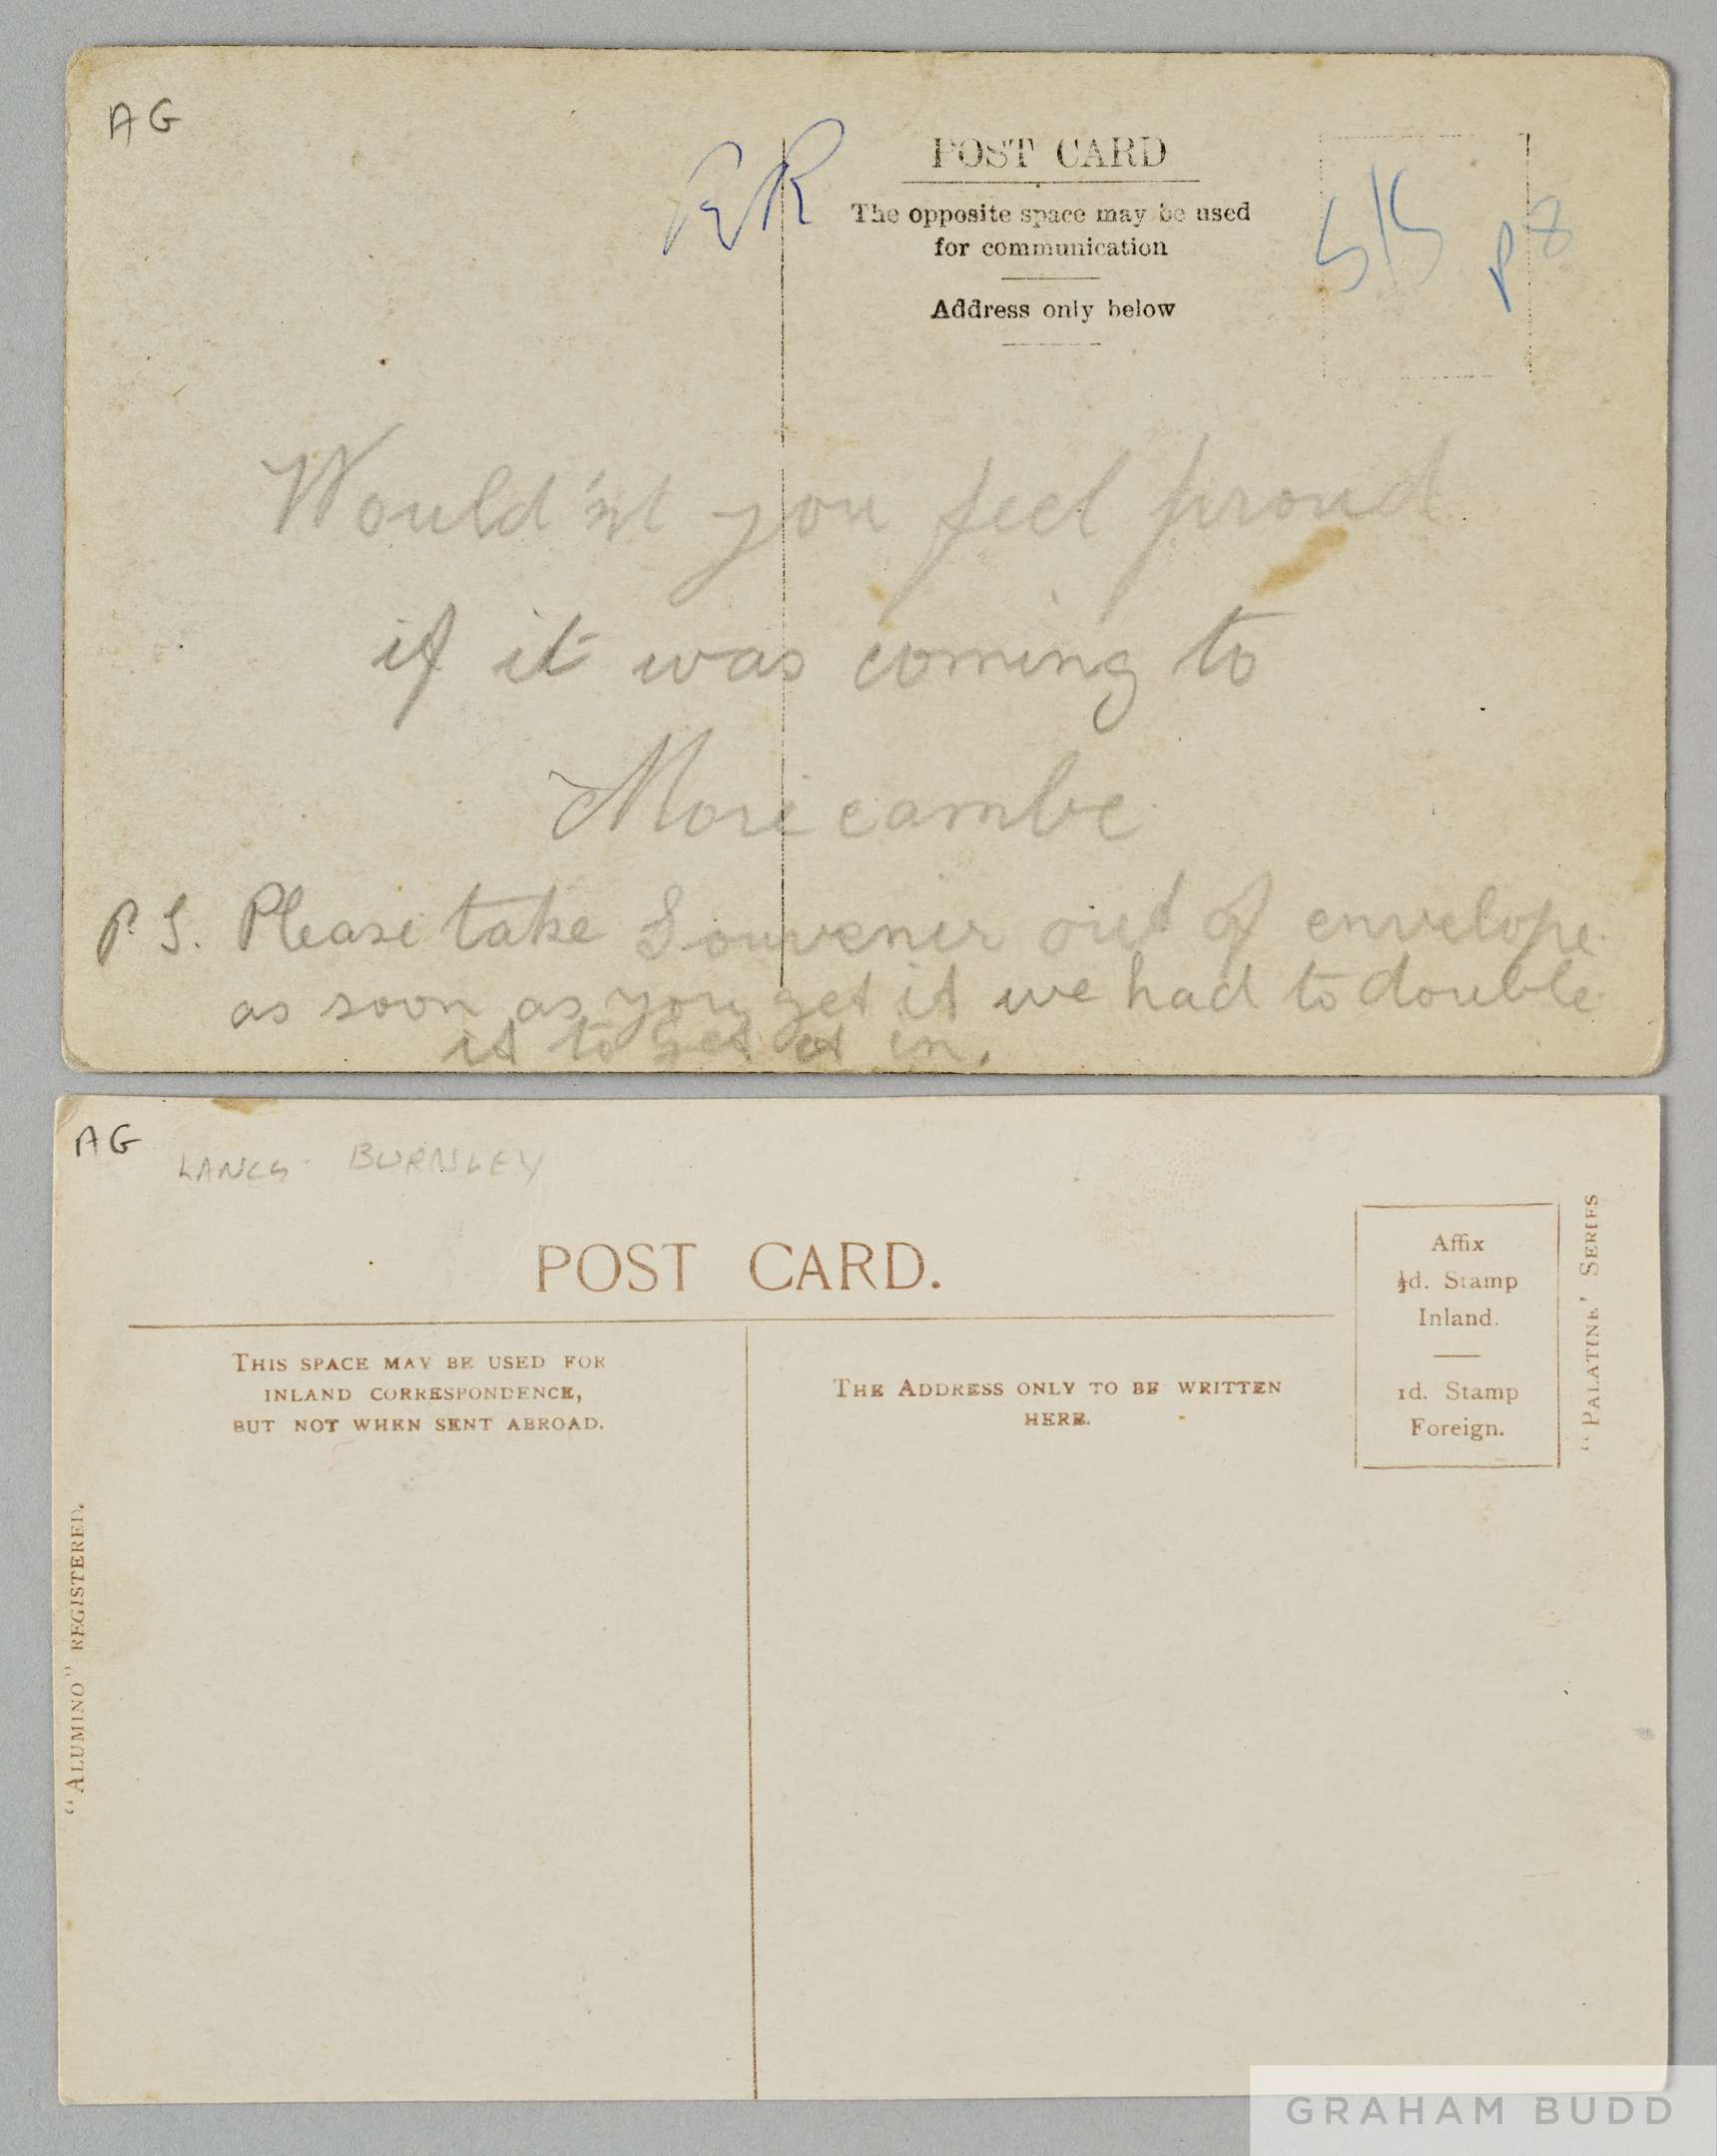 AG
POST CARD
The opposite space may be used
for communication
Address only below
P8
Would'nt you feel proud
if it was coming to
Morecambe
P.S. Please take Souvenir out of envelope
as soon as you get it we had to double
it to get it in.
AG
LANCS BURNLEY
POST CARD.
THIS SPACE MAY BE USED FOR
INLAND CORRESPONDENCE,
BUT NOT WHEN SENT ABROAD.
THE ADDRESS ONLY TO BE WRITTEN
HERE.
Affix
½d. Stamp
Inland.
1d. Stamp
Foreign.
"PALATINE" SERIES
"ALUMINO" REGISTERED.
GRAHAM BUDD